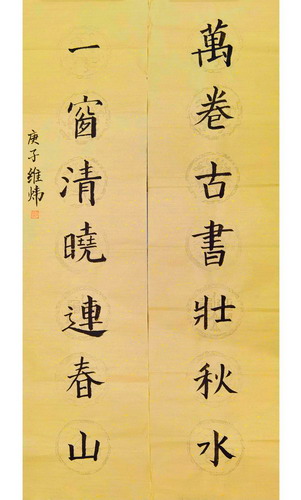 萬卷古書壯秋水
一窗清曉連春山
庚子維炜